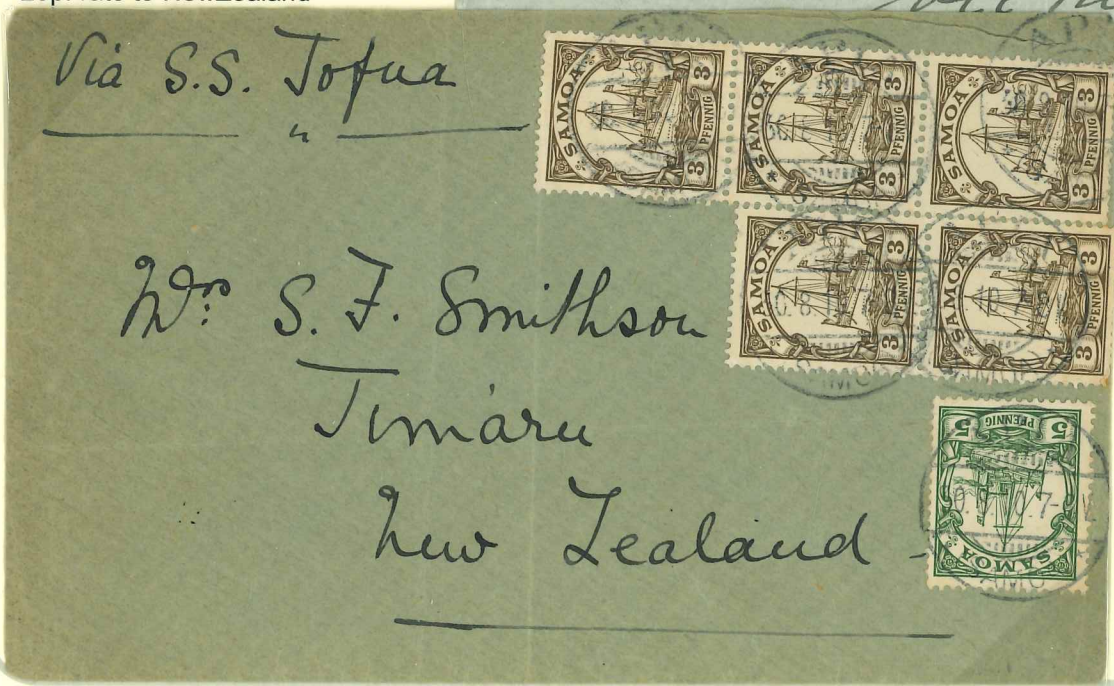 Via S.S. Tofua
"
Mrs S. F. Smithson
Timáru
New Zealand
SAMOA 3 3 PFENNIG
SAMOA 3 3 PFENNIG
SAMOA 3 3 PFENNIG
SAMOA 3 3 PFENNIG
SAMOA 3 3 PFENNIG
5 PFENNIG 5 SAMOA